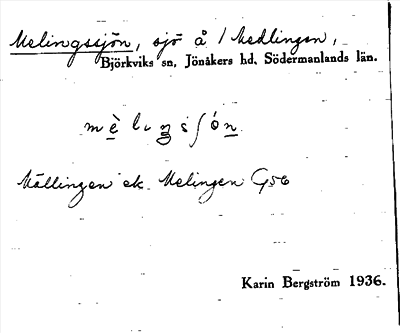 Melingssjön, sjö å / Medlingen,
Björkviks sn, Jönåkers hd, Södermanlands län.
Mällingen ek. Melingen
Karin Bergström 1936.